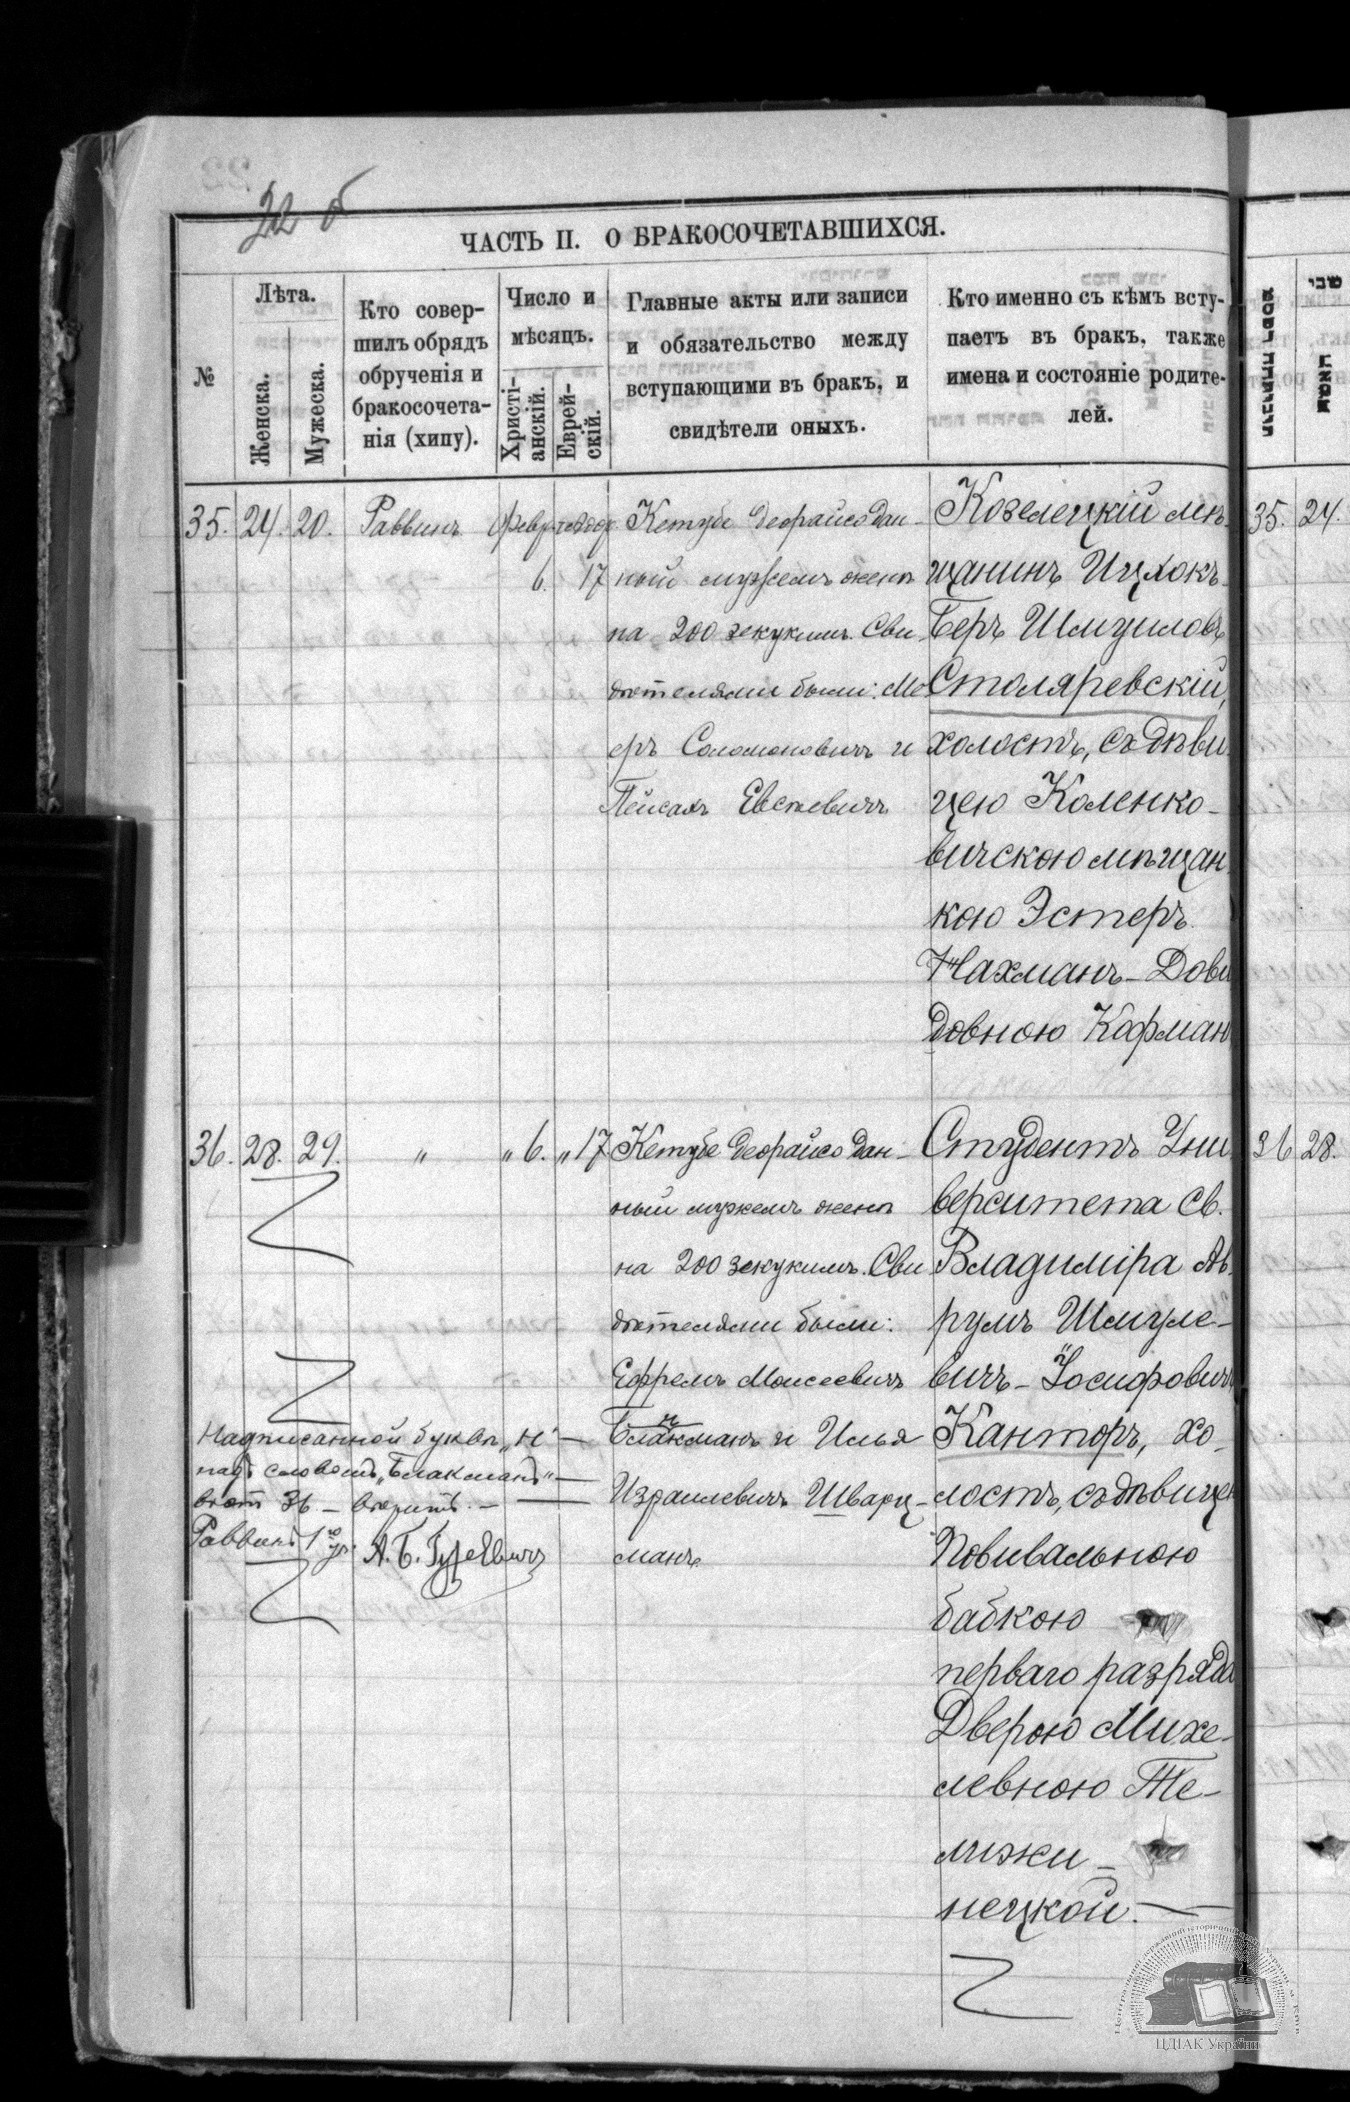 22 б
ЧАСТЬ II. О БРАКОСОЧЕТАВШИХСЯ.
№
Лѣта.
Женска.
Мужеска.
Кто совер-
шилъ обрядъ
обрученія и
бракосочета-
нія (хипу).
Число и
мѣсяцъ.
Христі-
анскій.
Еврей-
скій.
Главные акты или записи
и обязательство между
вступающими въ бракъ, и
свидѣтели оныхъ.
Кто именно съ кѣмъ всту-
паетъ въ бракъ, также
имена и состояніе родите-
лей.
35. 24. 20. Раввинъ Февр.
6. 17
Кетубе деорайсо дан-
ный мужемъ женѣ
на 200 зекукимъ. Сви-
дѣтелями были: Ме-
еръ Соломоновичъ и
Пейсахъ Евсеевичъ
Козелецкій мѣ-
щанинъ Ицхокъ-
Беръ Шмуиловъ
Столяревскій,
холостъ, съ дѣви-
цею Коленко-
вичскою мѣщан-
кою Эстеръ
Нахманъ-Дови-
довною Кофман
36. 28. 29. „ „ 6. „ 17
Кетубе деорайсо дан-
ный мужемъ женѣ
на 200 зекукимъ. Сви-
дѣтелями были:
Ефремъ Моисеевичъ
н
Блакманъ и Илья
Израилевичъ Шварц-
манъ.
Студентъ Уни-
верситета Св.
Владиміра Ав-
румъ Шмуле-
вичъ-Іосифовичъ
Канторъ, хо-
лостъ, съ дѣвицею
Повивальною
бабкою
перваго разряда
Дверою Михе-
левною Те-
лижи-
нецкой.
Надписанной буквы „н" —
надъ словомъ „Блакманъ" —
въ ст 36 — вѣрить. —
Раввинъ
А. Б. Гуревичъ
35. 24.
36 28.
ЦДІАК України